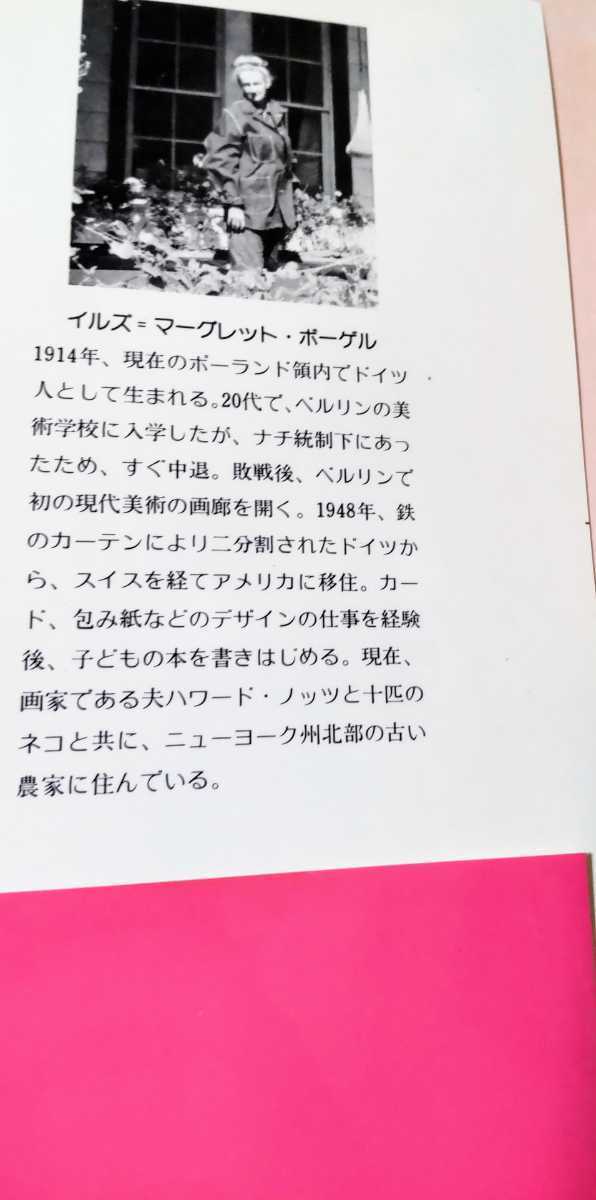 イルズ=マーグレット・ボーゲル
1914年、現在のポーランド領内でドイツ
人として生まれる。20代で、ベルリンの美
術学校に入学したが、ナチ統制下にあっ
たため、すぐ中退。敗戦後、ベルリンで
初の現代美術の画廊を開く。1948年、鉄
のカーテンにより二分割されたドイツか
ら、スイスを経てアメリカに移住。カー
ド、包み紙などのデザインの仕事を経験
後、子どもの本を書きはじめる。現在、
画家である夫ハワード・ノッツと十匹の
ネコと共に、ニューヨーク州北部の古い
農家に住んでいる。